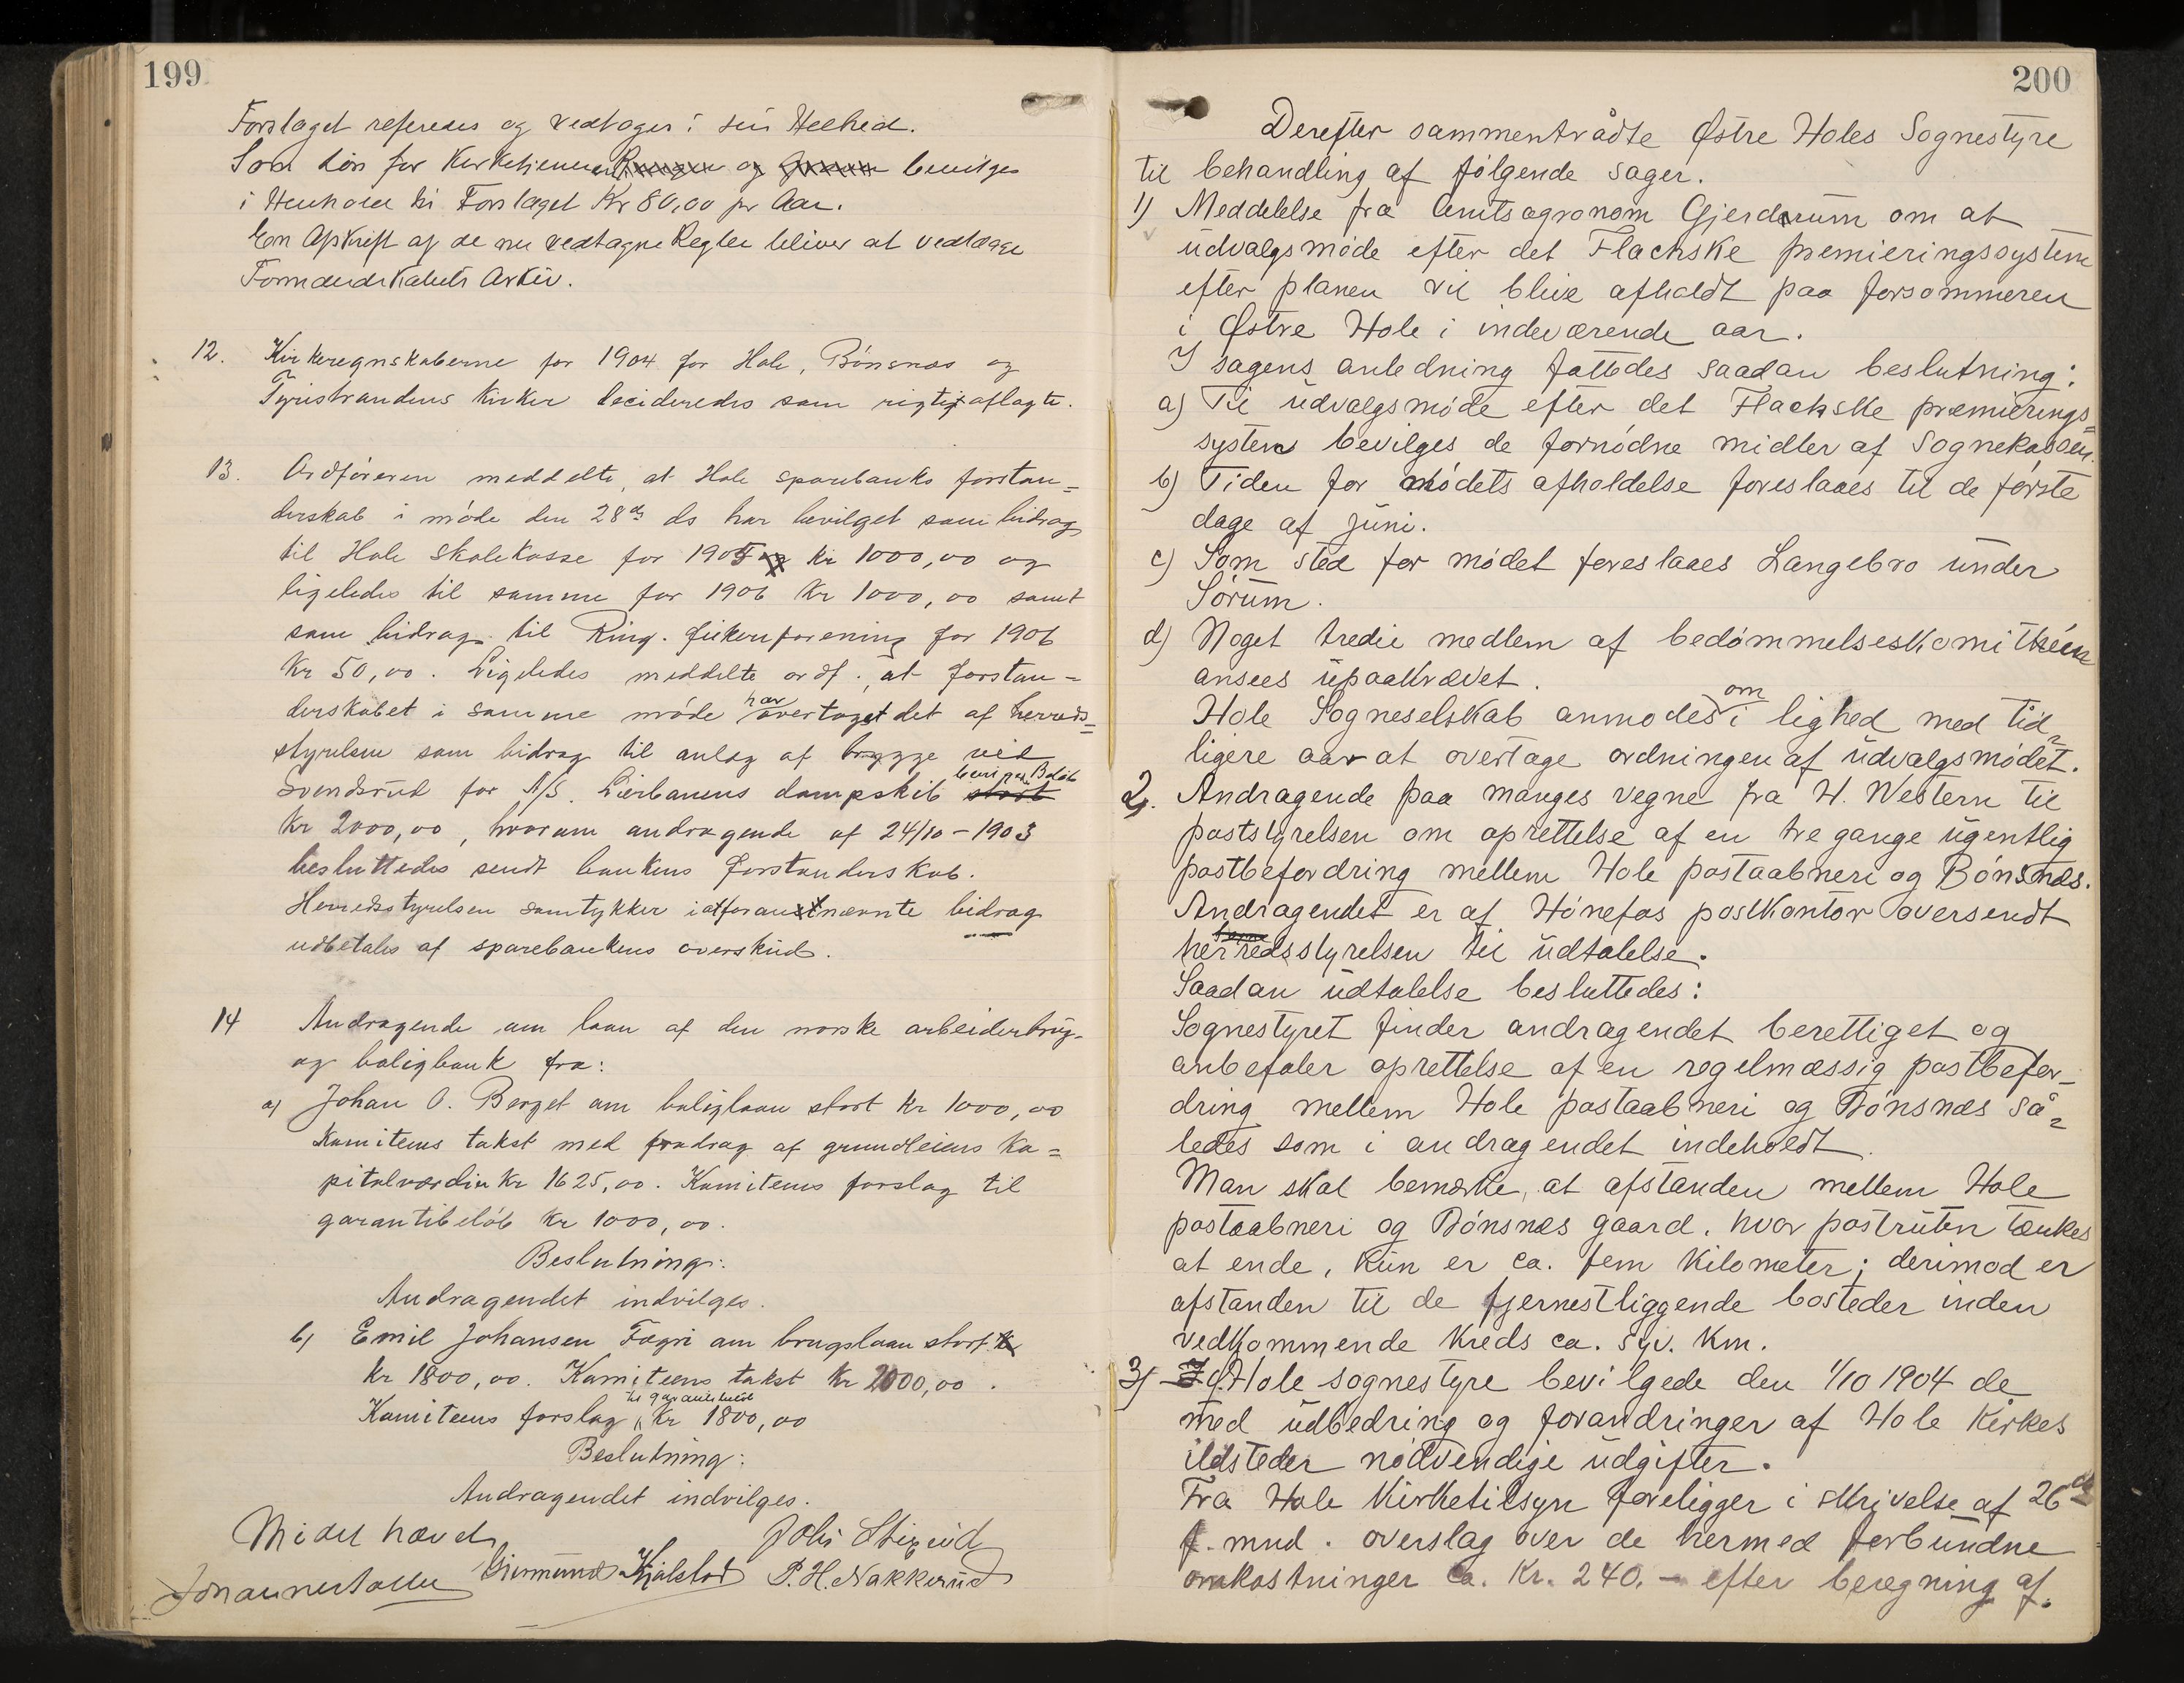 199
Forslaget refereres og vedtages i sin Helhed.
Som Løn for Kirketjeneren og bevilges
i Henhold til Forslaget Kr 80,00 pr Aar.
En Afskrift af de nu vedtagne Regler bliver at vedlægge
Formandskabets Arkiv.
12. Kirkeregnskaberne for 1904 for Hole, Bönsnæs og
Tyristrandens kirker decideredes som rigtig aflagte.
13. Ordföreren meddelte, at Hole sparebanks forstan=
derskab i möde den 28de ds har bevilget som bidrag
til Hole skolekasse for 1905 kr 1000,00 og
ligeledes til samme for 1906 Kr 1000,00 samt
som bidrag til Ring. fiskeriforening for 1906
Kr 50,00. Ligeledes meddelte ordf., at forstan=
derskabet i samme möde har overtaget det af herreds=
styrelsen som bidrag til anlæg af brygge ved
Svendsrud for A/S. Lierbanens dampskib bevilgede Belöb
Kr 2000,00, hvorom andragende af 24/10-1903
besluttedes sendt bankens forstanderskab.
Herredsstyrelsen samtykker i at foran nævnte bidrag
udbetales af sparebankens overskud.
14 Andragende om laan af den norske arbeiderbrug-
og boligbank fra:
a) Johan O. Berget om boliglaan stort kr 1000,00
Komiteens takst med fradrag af grundleiens ka=
pitalværdia Kr 1625,00. Komiteens forslag til
garantibelöb Kr 1000,00.
Beslutning:
Andragendet indvilges.
b) Emil Johansen Fægri om brugslaan stort
kr 1800,00. Komiteens takst Kr 2000,00.
Komiteens forslag til garantibelöb Kr 1800,00
Beslutning:
Andragendet indvilges.
Mödet hævet
Johs Stixrud
Gudmund Kjølstad P. H. Nakkerud
200
Derefter sammentrådte Østre Holes Sognestyre
til behandling af fölgende sager.
1) Meddelelse fra Amtsagronom Gjerdrum om at
udvalgsmöde efter det Flachske premieringssystem
efter planen vil blive afholdt paa forsommeren
i Østre Hole i indeværende aar.
I sagens anledning fattedes saadan beslutning:
a) Til udvalgsmöde efter det Flachske præmierings=
system bevilges de fornödne midler af Sognekassen.
b) Tiden for mödets afholdelse foreslaaes til de förste
dage af juni.
c) Som sted for mödet foreslaaes Langebro under
Sörum.
d) Noget tredie medlem af bedömmelseskomiteén
ansees upaakrævet.
Hole Sogneselskab anmodes om i lighed med tid=
ligere aar at overtage ordningen af udvalgsmödet.
2. Andragende paa manges vegne fra H. Western til
poststyrelsen om oprettelse af en tre gange ugentlig
postbefordring mellem Hole postaabneri og Bönsnæs.
Andragendet er af Hönefos postkontor oversendt
herredsstyrelsen til udtalelse.
Saadan udtalelse besluttedes:
Sognestyret finder andragendet berettiget og
anbefaler oprettelse af en regelmæssig postbefor=
dring mellem Hole postaabneri og Bönsnæs så=
ledes som i andragendet indeholdt.
Man skal bemærke, at afstanden mellem Hole
postaabneri og Bönsnæs gaard, hvor postruten tænkes
at ende, kun er ca. fem kilometer; derimod er
afstanden til de fjernestliggende bosteder inden
vedkommende kreds ca. syv. km.
3) Hole sognestyre bevilgede den 1/10 1904 de
med udbedring og forandringer af Hole Kirkes
ildsteder nödvendige udgifter.
Fra Hole Kirketilsyn foreligger i skrivelse af 26de
f. mnd. overslag over de hermed forbundne
omkostninger ca. Kr. 240.- efter beregning af.